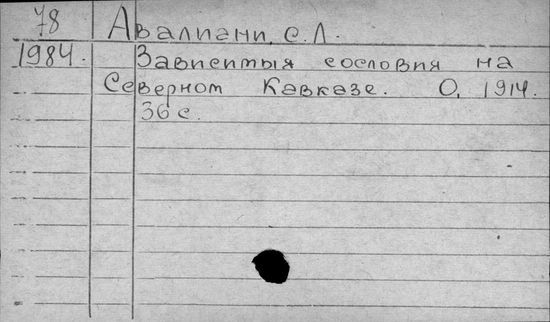 78 Авалиани, С. Л.
1984. Зависимыя сословия на
Северном Кавказе. О, 1914.
36 с.